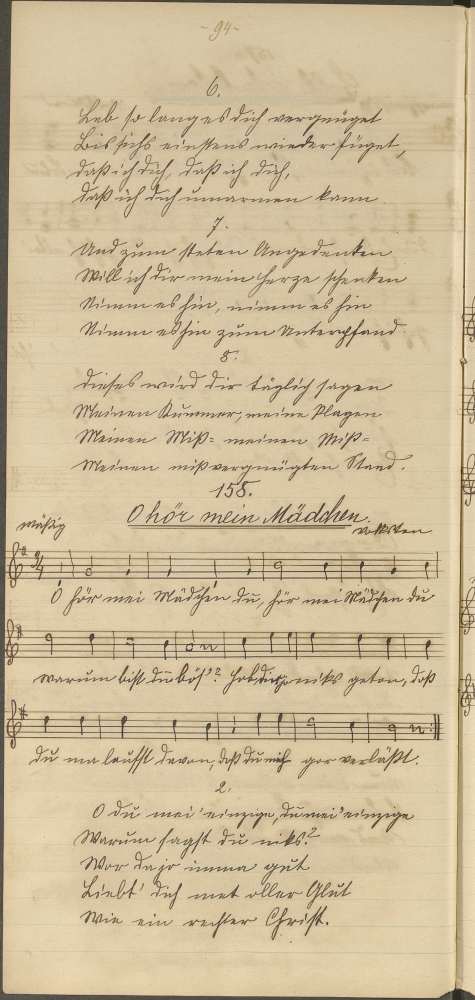 - 94 -
6.
Leb so lang es dich vergnüget
Bis sichs einstens wieder füget,
daß ich dich, daß ich dich,
daß ich dich umarmen kann
7.
Und zum steten Angedenken
Will ich dir mein Herze schenken
Nimm es hin, nimm es hin
Nimm es hin zum Unterpfand
8.
dieses wird dir täglich sagen
Meinen Kummer, meine Plagen
Meinen Miß= meinen Miß=
Meinen mißvergnügten Stand.
158.
O hör mein Mädchen.
mäßig
O hör mei Mädchen du, hör mei Mädchen du
warum bist du bös'? Hob niks geton, daß
du ma laufst davon, daß du mich gor verläßt.
2.
O du mei' einzige, du mei' einzige
Warum sagst du niks?
Wor da jo imma gut
Liebt' dich met oller Glut
Wie ein rechter Christ.